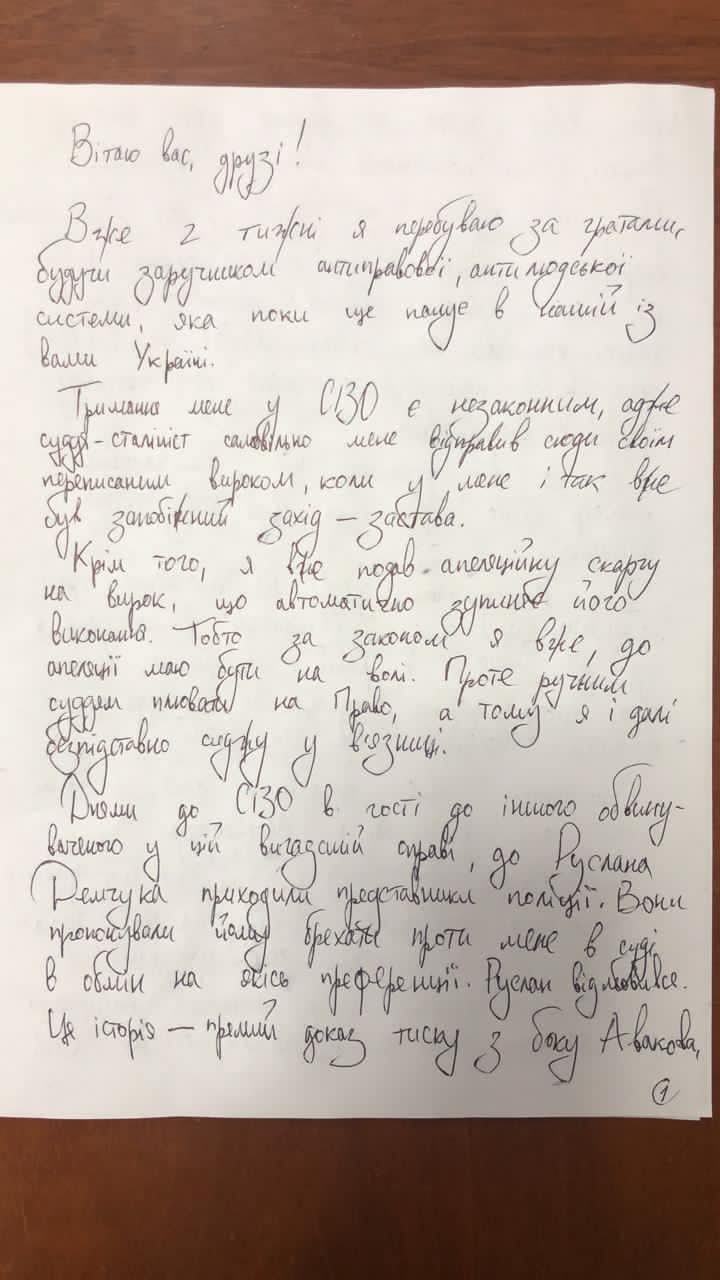 Вітаю вас, друзі!
Вже 2 тижні я перебуваю за гратами,
будучи заручником антиправової, антилюдської
системи, яка поки ще панує в нашій із
вами Україні.
Тримання мене у СІЗО є незаконним, адже
суддя-сталініст самовільно мене відправив сюди своїм
переписаним вироком, коли у мене і так вже
був запобіжний захід – застава.
Крім того, я вже подав апеляційну скаргу
на вирок, що автоматично зупиняє його
виконання. Тобто за законом я вже, до
апеляції маю бути на волі. Проте ручним
суддям плювати на Право, а тому я і далі
безпідставно сиджу у в'язниці.
Днями до СІЗО в гості до іншого обвину-
ваченого у цій вигаданій справі, до Руслана
Демчука приходили представники поліції. Вони
пропонували йому брехати проти мене в суді
в обмін на якісь преференції. Руслан відмовився.
Ця історія – прямий доказ тиску з боку Авакова,
1